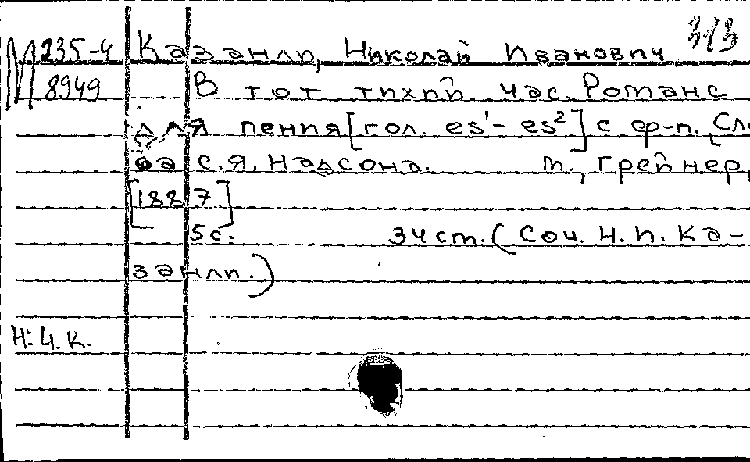 313
М 235-4 Казанли, Николай Иванович
8949 В тот тихий час. Романс
для пения [гол. es¹- es²] с ф-п. (Сло
ва С.Я. Надсона. М., Грейнер,
[1887]
5с. 34 см. (Соч. Н.И. Ка-
занли.)
Н.Ч.К.